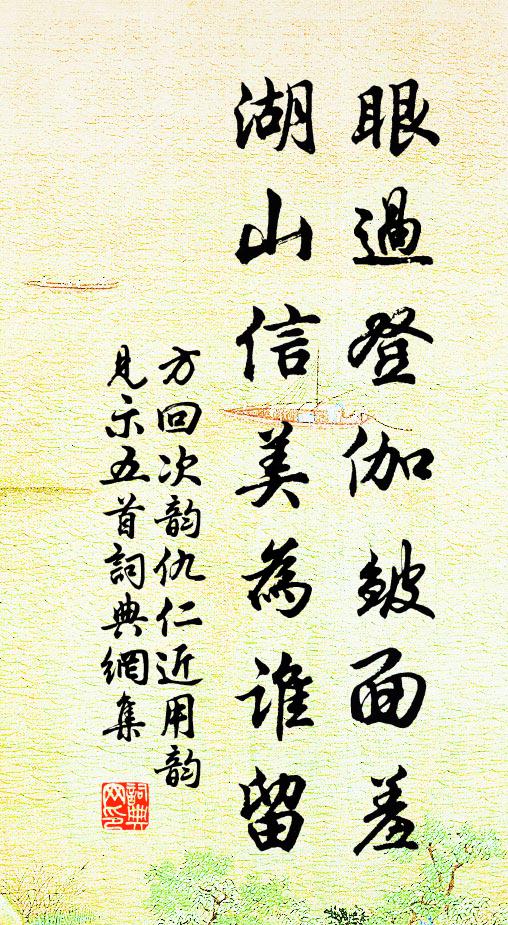 眼過登伽皴面羞
湖山信美為誰留
方回次韵仇仁近用韵
見示五首詞典網集
詞典
网印